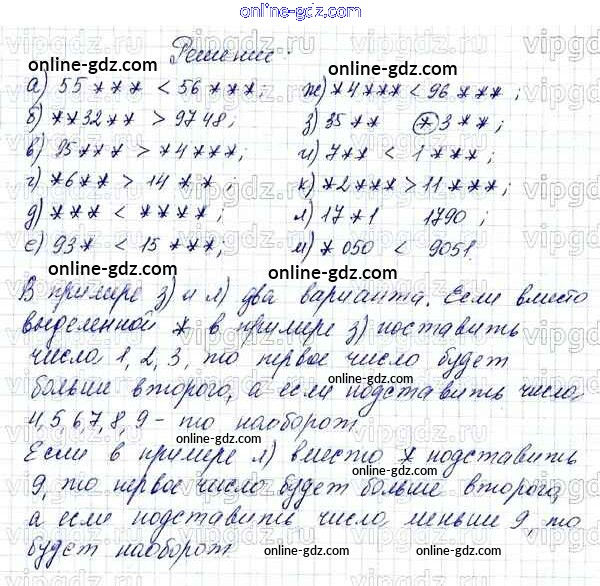 online-gdz.com
Решение:
online-gdz.com online-gdz.com
а) 55*** < 56***; ж) *4*** < 96***;
б) **32** > 9748; з) 35** (*)3**;
в) 95*** > *4***; и) 7** < 1***;
г) *6** > 14**; к) *2*** > 11***;
д) *** < ****; л) 17*1 1790;
е) 93* < 15***; м) *050 < 9051.
online-gdz.com online-gdz.com
В примере з) и л) два варианта. Если вместо
выделенной * в примере з) поставить
числа 1, 2, 3, то первое число будет
online-gdz.com
больше второго, а если подставить числа
4, 5, 6, 7, 8, 9 - то наоборот.
online-gdz.com
Если в примере л) вместо * подставить
online-gdz.com
9, то первое число будет больше второго,
а если подставить числа меньши 9, то
будет наоборот.
online-gdz.com
vipgdz.ru